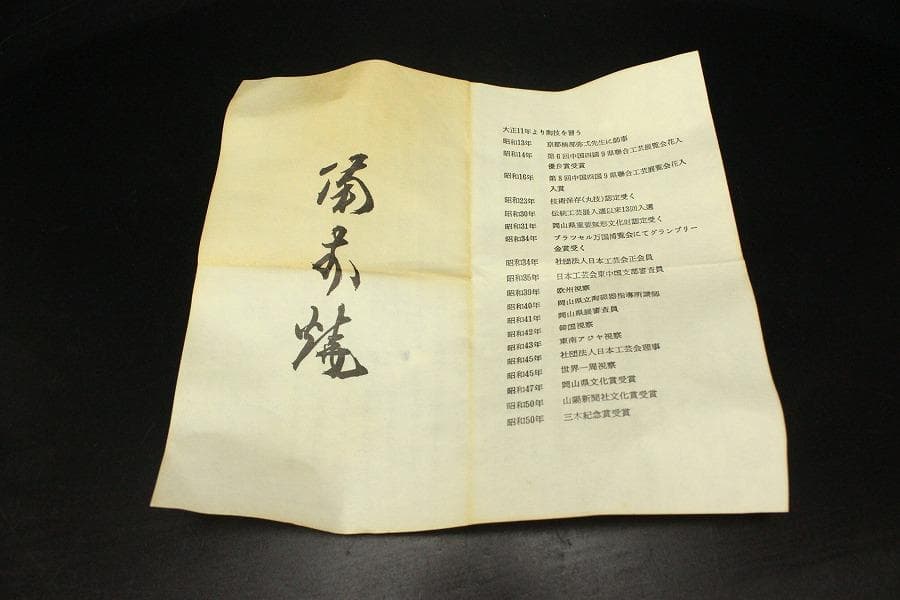 備前焼
大正11年より陶技を習う
昭和13年 京都楠部弥弌先生に師事
昭和14年 第6回中国四国9県聯合工芸展覧会花入
優良賞受賞
昭和16年 第8回中国四国9県聯合工芸展覧会花入
入賞
昭和23年 技術保存(丸技)認定受く
昭和30年 伝統工芸展入選以来13回入選
昭和31年 岡山県重要無形文化財認定受く
昭和34年 ブラッセル万国博覧会にてグランプリー
金賞受く
昭和34年 社団法人日本工芸会正会員
昭和35年 日本工芸会東中国支部審査員
昭和39年 欧州視察
昭和40年 岡山県立陶磁器指導所講師
昭和41年 岡山県展審査員
昭和42年 韓国視察
昭和43年 東南アジヤ視察
昭和45年 社団法人日本工芸会理事
昭和45年 世界一周視察
昭和47年 岡山県文化賞受賞
昭和50年 山陽新聞社文化賞受賞
昭和50年 三木紀念賞受賞